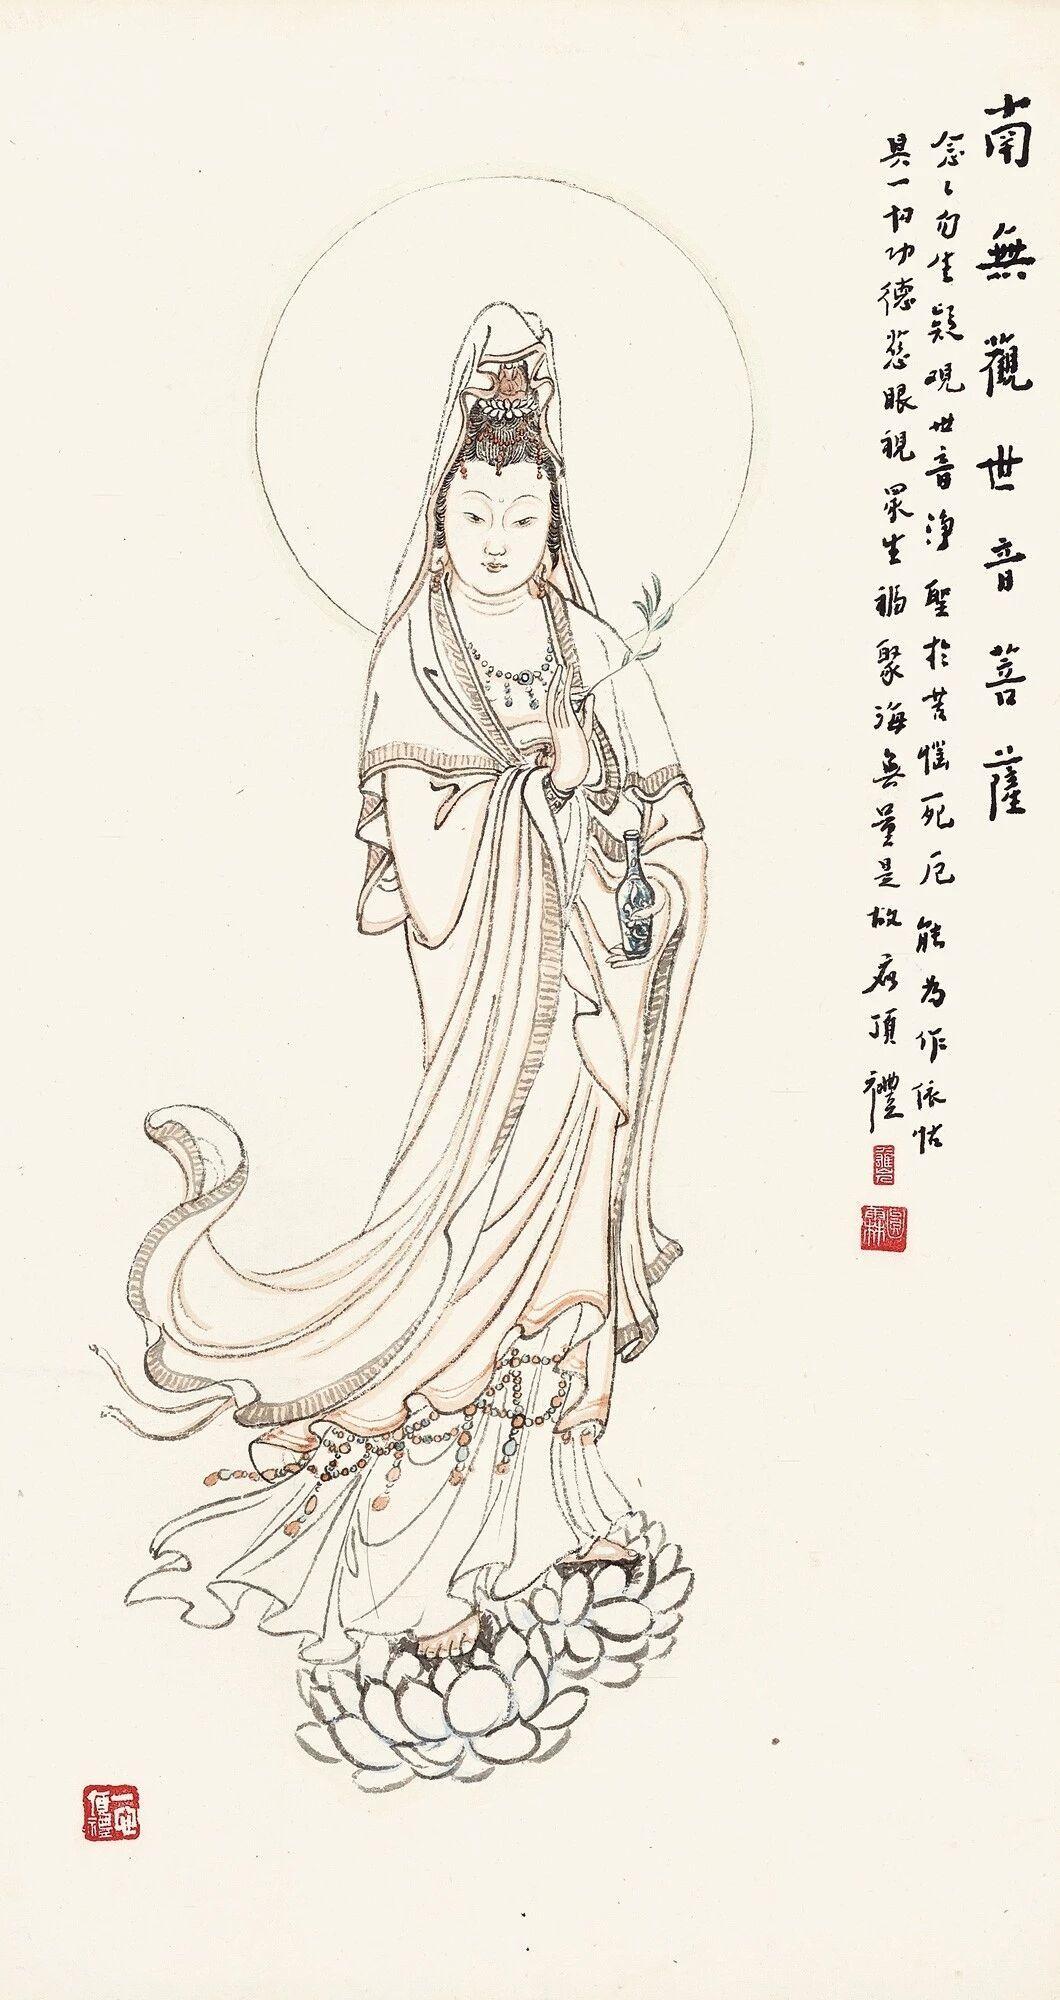 南無觀世音菩薩
念々勿生疑觀世音淨聖於苦惱死厄能為作依怙
具一切功德慈眼視眾生福聚海無量是故應頂禮